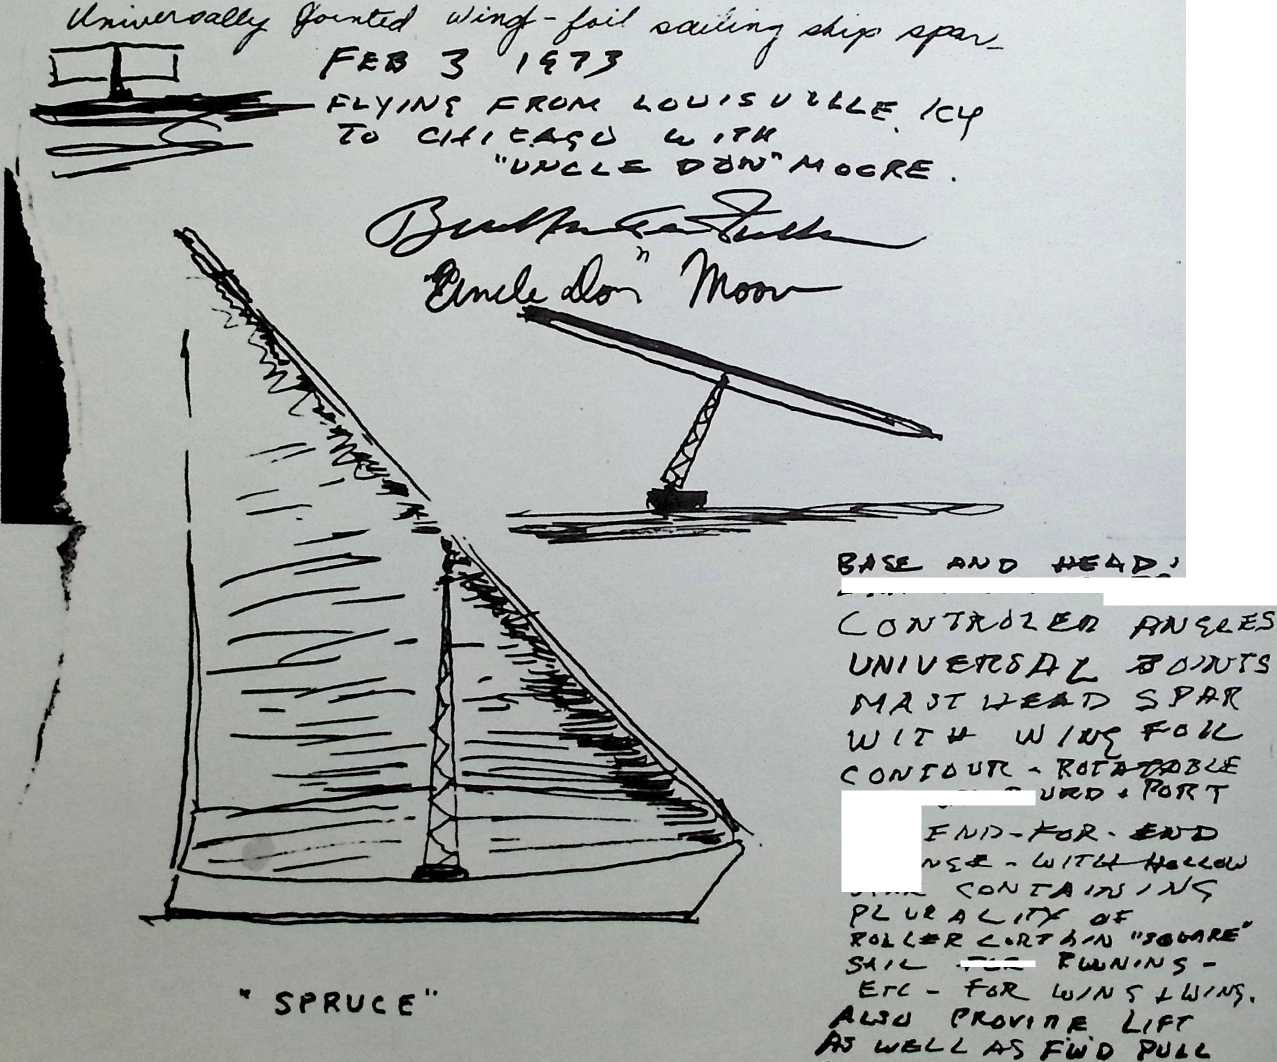 Universally Jointed wing-foil sailing ship spar-
FEB 3 1973
FLYING FROM LOUISVILLE, KY
TO CHICAGO WITH
"UNCLE DON" MOORE.
Buckminster Fuller
"Uncle Don" Moore
BASE AND HEAD:
CONTROLED ANGLES
UNIVERSAL JOINTS
MAST HEAD SPAR
WITH WING FOIL
CONTOUR - ROTATABLE
+ PORT
END-FOR-END
- WITH HOLLOW
CONTAINING
PLURALITY OF
ROLLER CURTAIN "SQUARE"
SAIL RUNNING -
ETC - FOR WING & WING.
ALSO PROVIDE LIFT
AS WELL AS FW'D PULL
"SPRUCE"